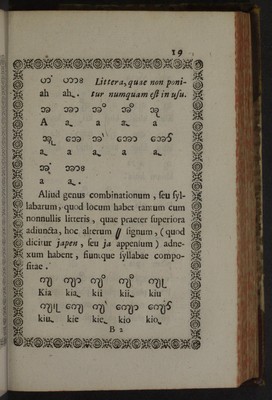 19
ဟံ ဟား Littera, quae non poni-
ah ah. tur numquam est in usu.
အ အာ အိ အီ အု
A a a a a
အူ အေ အဲ အော အော်
a a a a a
အံ အား
a a.
Aliud genus combinationum, seu syl-
labarum, quod locum habet tantum cum
nonnullis litteris, quae praeter superiora
adiuncta, hoc alterum signum, (quod
dicitur japen, seu ja appenium) adne-
xum habent, siuntque syllabae compo-
sitae.
ကျ ကျာ ကျိ ကျီ ကျု
Kia kia kii kii kiu
ကျူ ကျေ ကျဲ ကျော ကျော်
kiu kie kie kio kio
B 2